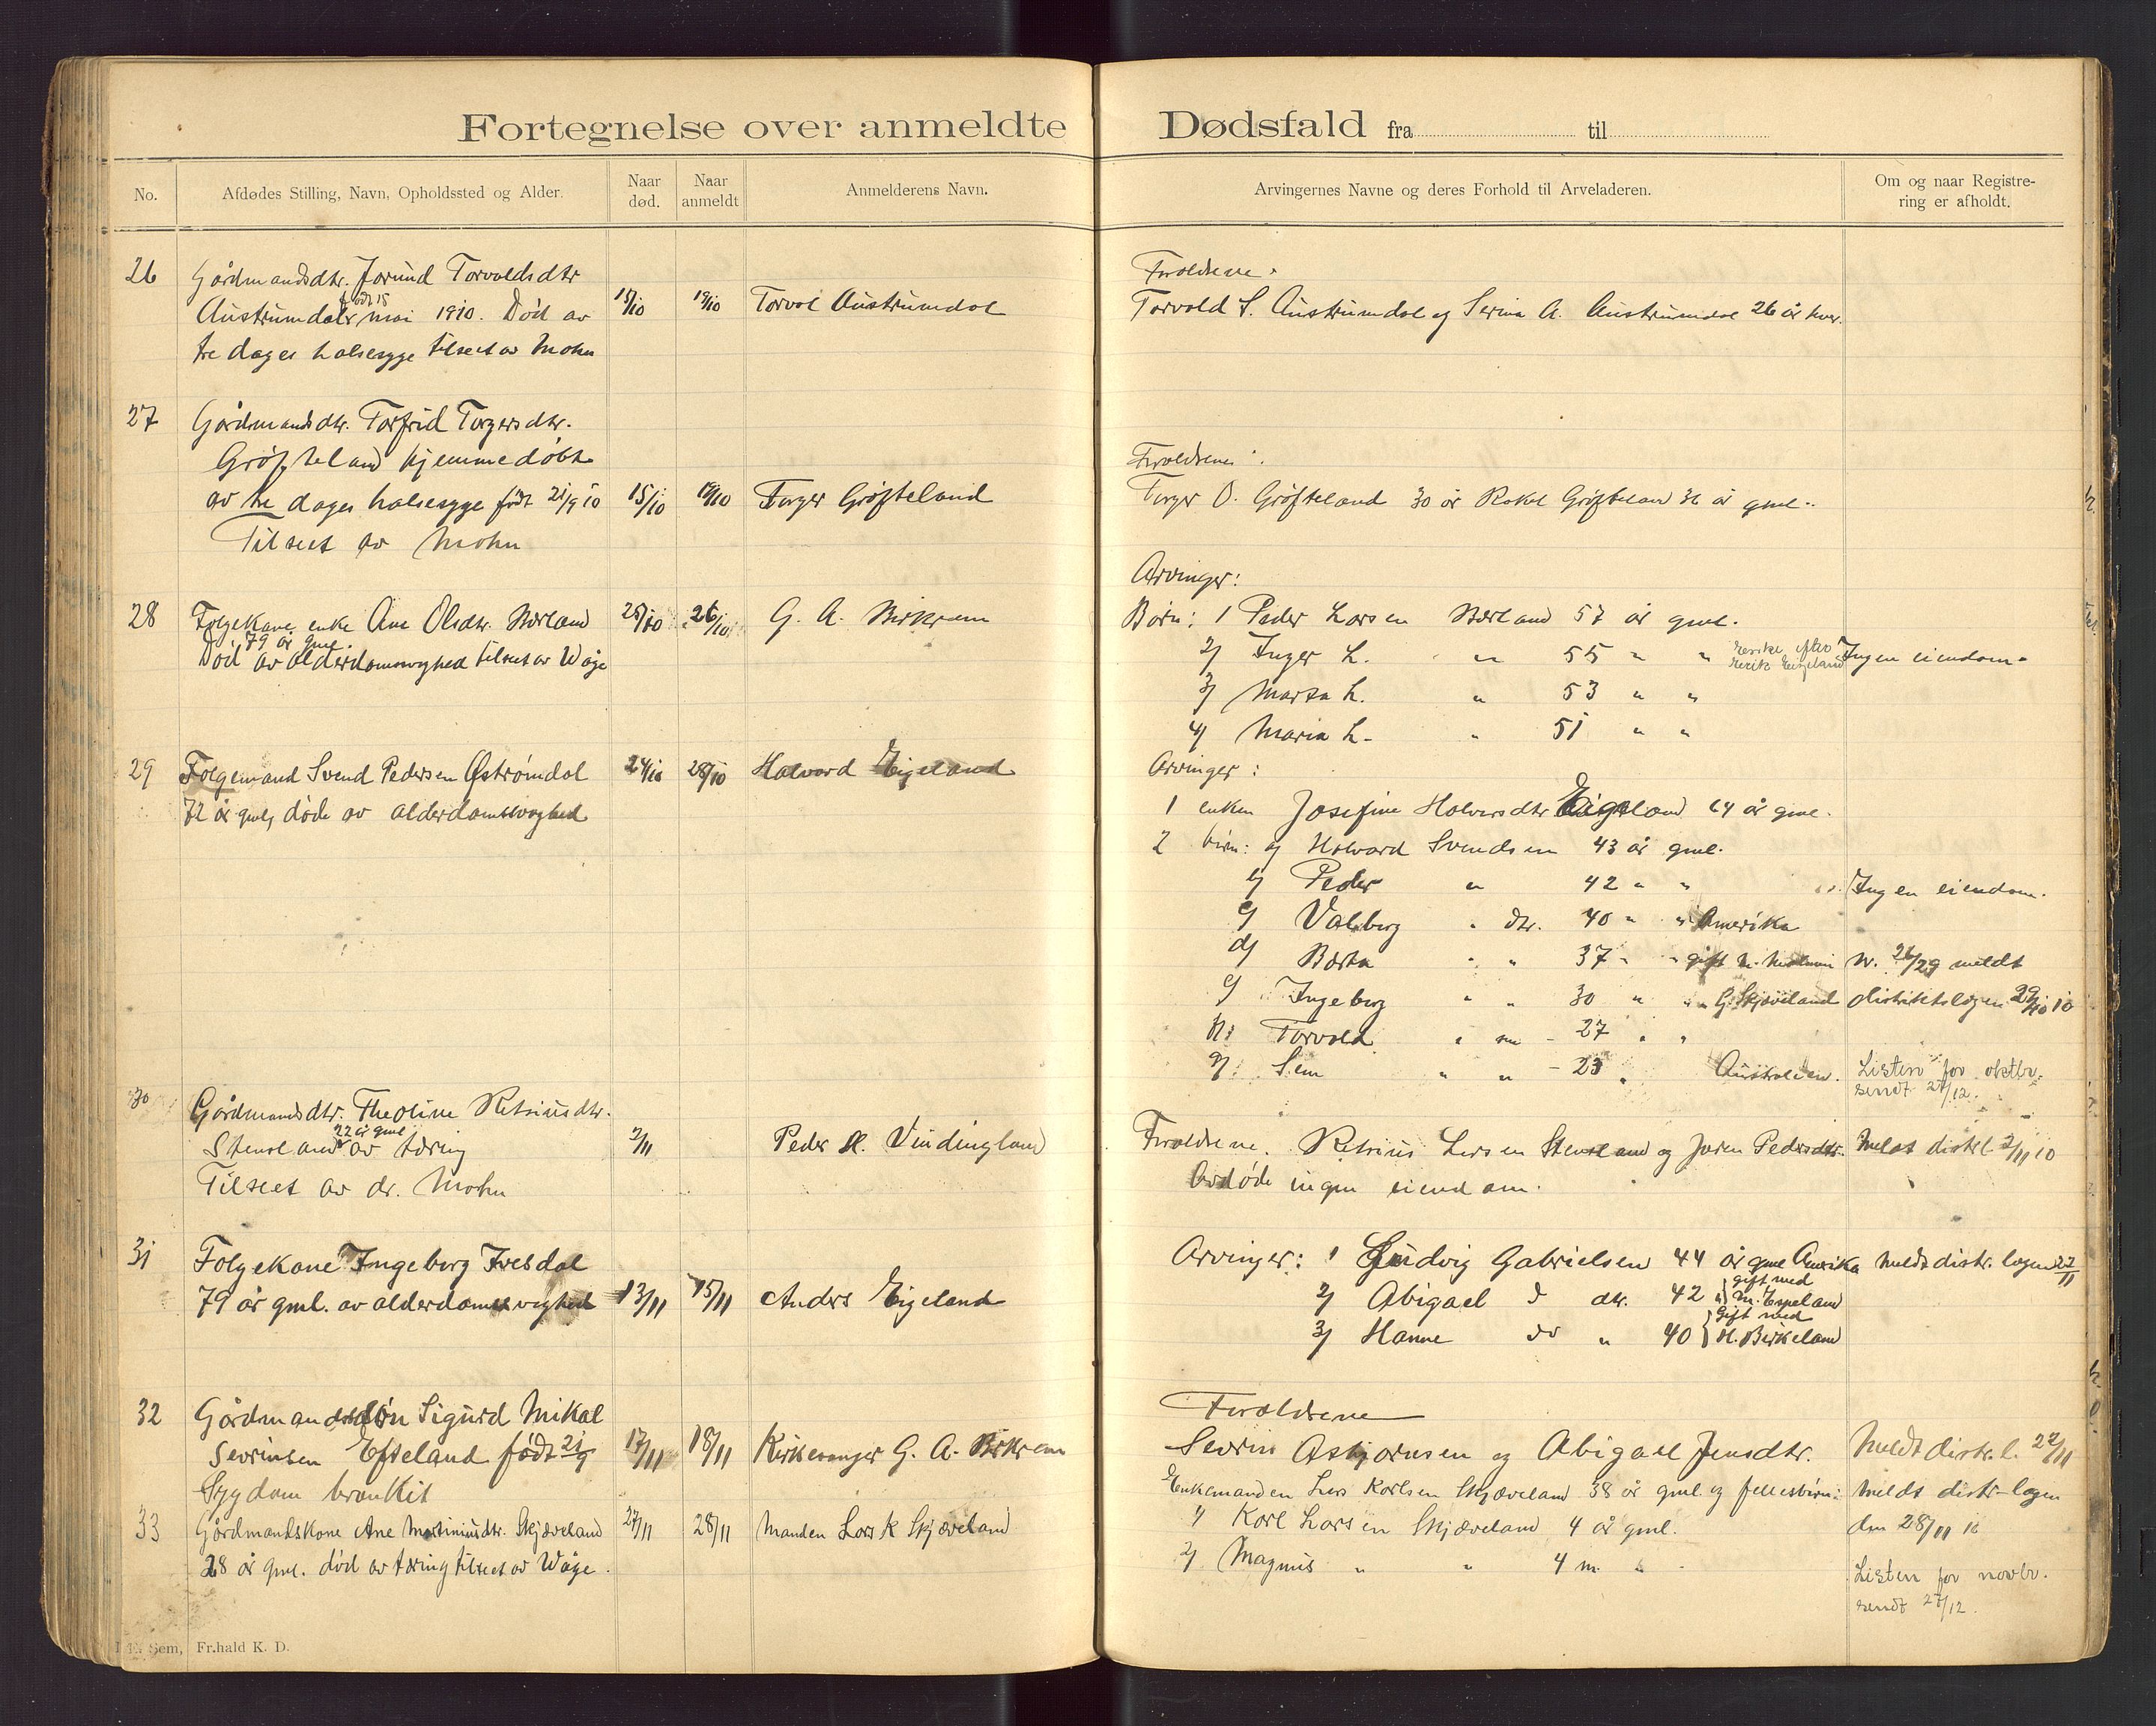 Fortegnelse over anmeldte Dødsfald fra til
No.
Afdødes Stilling, Navn, Opholdssted og Alder.
Naar død.
Naar anmeldt
Anmelderens Navn.
Arvingernes Navne og deres Forhold til Arveladeren.
Om og naar Registre-
ring er afholdt.
26 Gårdmandsdtr. Jorund Torvoldsdtr
Austrumdal født 15 mai 1910. Död av
tre dages halsesyge tilseet av Mohn
15/10 19/10 Torvol Austrumdal
Foreldrene.
Torvold S. Austrumdal og Serina A. Austrumdal 26 år hver.
27 Gårdmandsdtr. Torfrid Torgersdtr.
Gröfteland hjemmedöbt
av tre dages halsesyge födt 21/9 10
Tilseet av Mohn
15/10 19/10 Torger Gröfteland
Foreldrene:
Torger O. Gröfteland 30 år Rakel Gröfteland år gml.
28 Folgekone enke Ane Olsdtr. Börland
79 år gml.
Död av alderdomssvaghed tilseet av Wåge
25/10 26/10 G. A. Birkrem
Arvinger:
Børn: 1 Peder Larsen Börland 57 år gml.
2) Inger L. " 55 " "
Ingen eiendom.
3) Marta L. " 53 " "
4) Maria L. " 51 " "
29 Folgemand Svend Pedersen Öströmdal
72 år gml, döde av alderdomssvaghed
24/10 28/10 Halvard Eigeland
Arvinger:
1 enken Josefine Halvorsdtr Eigeland 64 år gml.
2 börn: a) Halvard Svendsen 43 år gml.
b) Peder " 42 " "
Ingen eiendom.
c) Valborg " dtr. 40 " " Amerika
d) Berta " " 37 " " gift
Nr. 26/29 meldt
e) Ingeborg " " 30 " " " G. Skjæveland
distriktslægen 29/10 10
f) Torvold " sn - 27 " "
g) Sem " " - 23 " Australien.
Listen for oktbr.
sendt 27/12.
30 Gårdmandsdtr. Theoline Retriusdtr.
22 år gml
Stensland av täring
Tilseet av dr. Mohn
2/11 Peder H. Vindingland
Foreldrene. Retrius Larsen Stensland og Joren Pedersdtr.
Avdöde ingen eiendom.
Meldt distr.l. 2/11 10
31 Folgekone Ingeborg Ivesdal
79 år gml. av alderdomssvaghed
13/11 15/11 Anders Eigeland
Arvinger: 1 Ludvig Gabrielsen 44 år gml Amerika
Meldt distr. lægen 22/11
2) Abigael d dtr. 42 " } gift med M. Espeland
3) Hanne do " 40 } gift med H. Birkeland
32 Gårdmandssön Sigurd Mikal
Sevrinsen Efteland födt 21/9
Sygdom bronkit
17/11 18/11 Kirkesanger G. A. Birkrem
Foreldrene
Sevrin Asbjornsen og Abigael Jensdtr.
Meldt distr.l. 22/11
33 Gårdmandskone Ane Martiniusdtr. Skjæveland
28 år gml. död av täring tilseet av Wåge.
27/11 28/11 Manden Lars K Skjæveland
Enkemanden Lars Karlsen Skjæveland 38 år gml. og fellesbörn:
1) Karl Larsen Skjæveland 4 år gml.
2) Magnus " " 4 m. "
Meldt distr-lægen
den 28/11 10
Listen for novbr.
sendt 27/12.
Sem, Fr.hald K. D.